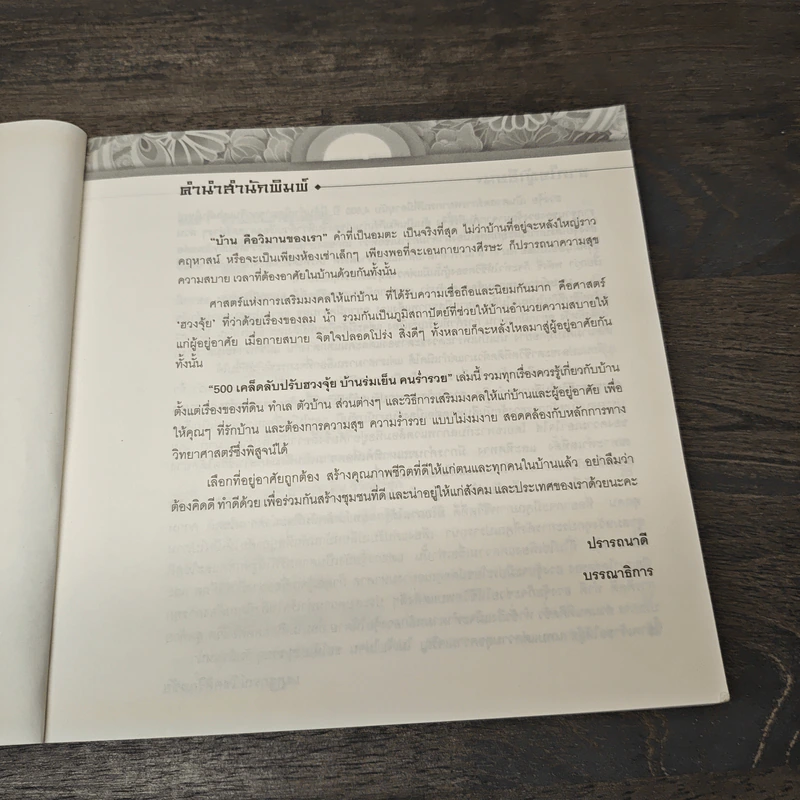 คำนำสำนักพิมพ์
"บ้าน คือวิมานของเรา" คำที่เป็นอมตะ เป็นจริงที่สุด ไม่ว่าบ้านที่อยู่จะหลังใหญ่ราว
คฤหาสน์ หรือจะเป็นเพียงห้องเช่าเล็กๆ เพียงพอที่จะเอนกายวางศีรษะ ก็ปรารถนาความสุข
ความสบาย เวลาที่ต้องอาศัยในบ้านด้วยกันทั้งนั้น
ศาสตร์แห่งการเสริมมงคลให้แก่บ้าน ที่ได้รับความเชื่อถือและนิยมกันมาก คือศาสตร์
'ฮวงจุ้ย' ที่ว่าด้วยเรื่องของลม น้ำ รวมกันเป็นภูมิสถาปัตย์ที่ช่วยให้บ้านอำนวยความสบายให้
แก่ผู้อยู่อาศัย เมื่อกายสบาย จิตใจปลอดโปร่ง สิ่งดีๆ ทั้งหลายก็จะหลั่งไหลมาสู่ผู้อยู่อาศัยกัน
ทั้งนั้น
"500 เคล็ดลับปรับฮวงจุ้ย บ้านร่มเย็น คนร่ำรวย" เล่มนี้ รวมทุกเรื่องควรรู้เกี่ยวกับบ้าน
ตั้งแต่เรื่องของที่ดิน ทำเล ตัวบ้าน ส่วนต่างๆ และวิธีการเสริมมงคลให้แก่บ้านและผู้อยู่อาศัย เพื่อ
ให้คุณๆ ที่รักบ้าน และต้องการความสุข ความร่ำรวย แบบไม่งมงาย สอดคล้องกับหลักการทาง
วิทยาศาสตร์ซึ่งพิสูจน์ได้
เลือกที่อยู่อาศัยถูกต้อง สร้างคุณภาพชีวิตที่ดีให้แก่ตนและทุกคนในบ้านแล้ว อย่าลืมว่า
ต้องคิดดี ทำดีด้วย เพื่อร่วมกันสร้างชุมชนที่ดี และน่าอยู่ให้แก่สังคม และประเทศของเราด้วยนะคะ
ปรารถนาดี
บรรณาธิการ